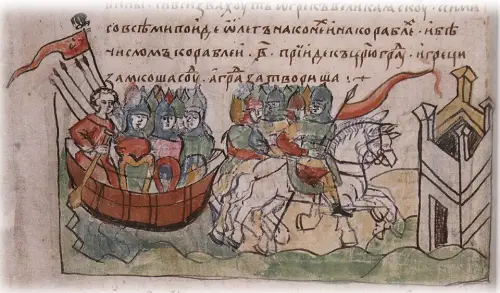 со всѣми поиде ѿлегъ на конеи на кораблѣ. и бѣ
числомъ кораблеи. в҃. прїиде къ цр҃югра҃. и греци
замкоша соу҃. а гра҃ затвориша